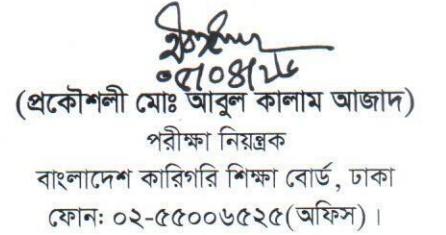 (প্রকৌশলী মোঃ আবুল কালাম আজাদ)
পরীক্ষা নিয়ন্ত্রক
বাংলাদেশ কারিগরি শিক্ষা বোর্ড, ঢাকা
ফোন: ০২-৫৫০০৬৫২৫(অফিস)।